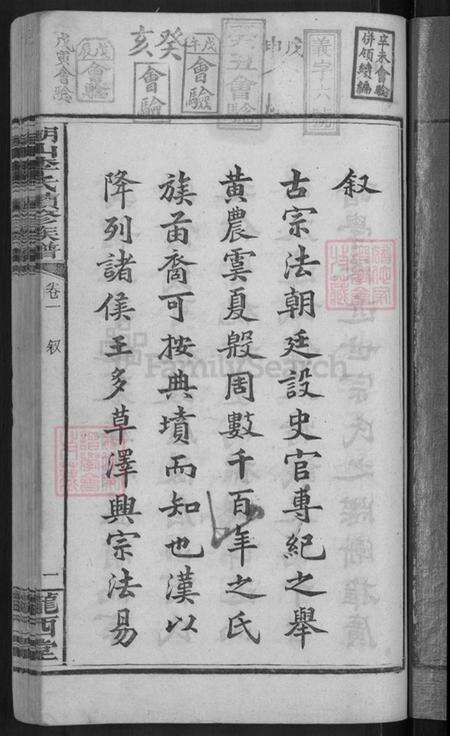 叙
古宗法朝廷設史官專紀之舉
黃農虞夏殷周數千百年之氏
族苗裔可按典墳而知也漢以
降列諸侯王多草澤興宗法易
辛未會輪
併領續編
義字六號
戊午
會驗
癸亥
會驗
戊寅會驗
會輪
李氏續修族譜
卷一
叙
一
隴西堂
FamilySearch